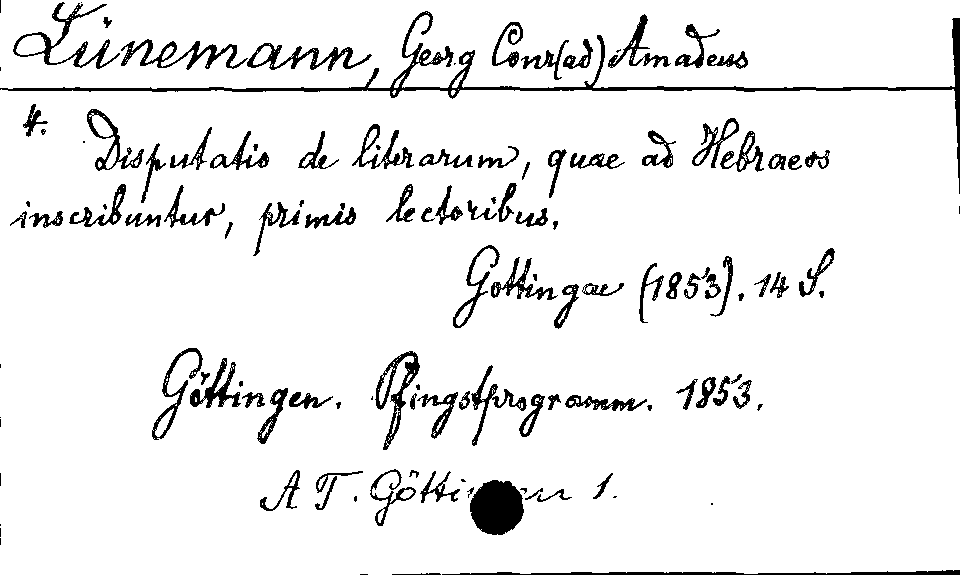 Lünemann, Georg Conr(ad) Amadeus
4. Disputatio de literarum, quae ad Hebraeos
inscribuntur, primis lectoribus.
Gottingae (1853). 14 S.
Göttingen. Pfingstprogramm. 1853.
A T. Göttingen 1.